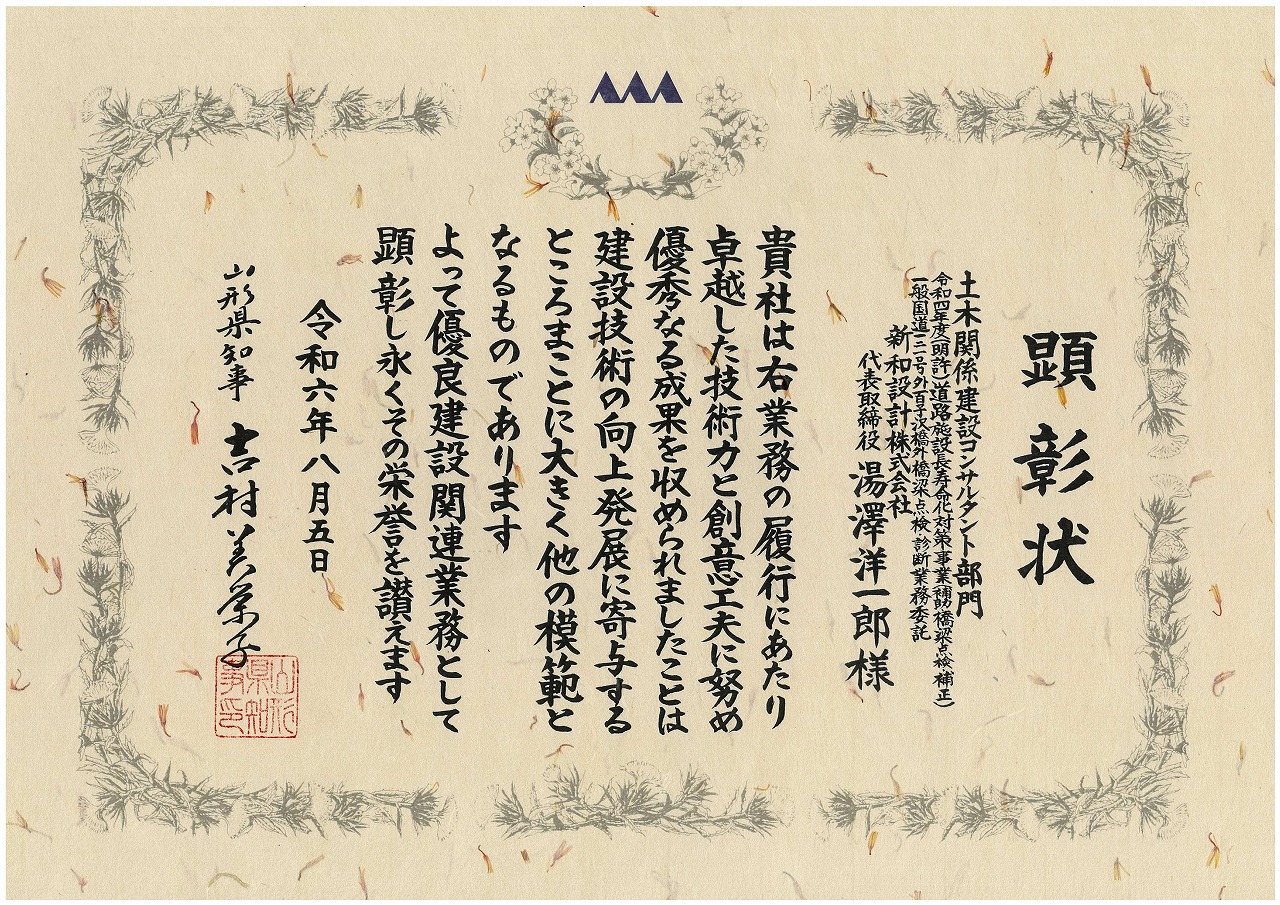 顕彰状
土木関係建設コンサルタント部門
令和四年度(明許)道路施設長寿命化対策事業補助橋梁点検(補正)
一般国道一二一号外百子沢橋外橋梁点検・診断業務委託
新和設計株式会社
代表取締役 湯澤洋一郎様
貴社は右業務の履行にあたり
卓越した技術力と創意工夫に努め
優秀なる成果を収められましたことは
建設技術の向上発展に寄与する
ところまことに大きく他の模範と
なるものであります
よって優良建設関連業務として
顕彰し永くその栄誉を讃えます
令和六年八月五日
山形県知事 吉村美栄子
山形県知事印